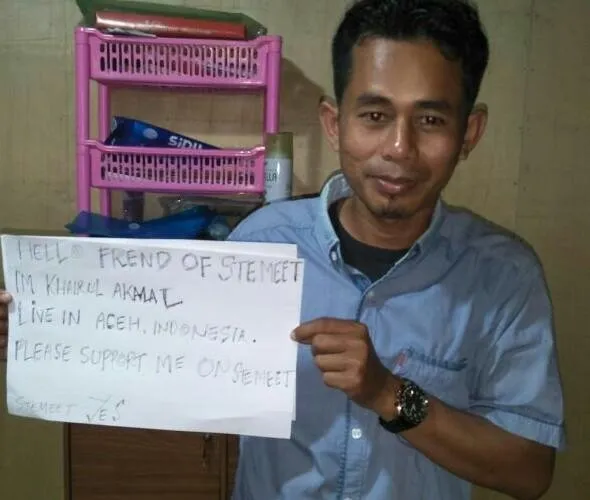 SiDU
LLA
HELLO FREND OF STEMEET
I'M KHAIRUL AKMAL
LIVE IN ACEH, INDONESIA.
PLEASE SUPPORT ME ON STEMEET
STEMEET YES